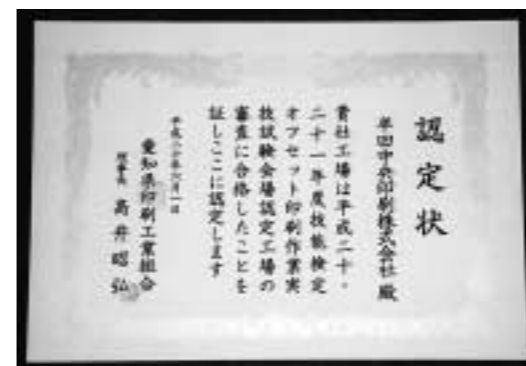 認定状
半田中央印刷株式会社 殿
貴社工場は平成二十・
二十一年度技能検定
オフセット印刷作業実
技試験会場認定工場の
審査に合格したことを
証しここに認定します
愛知県印刷工業組合
理事長 高井昭弘